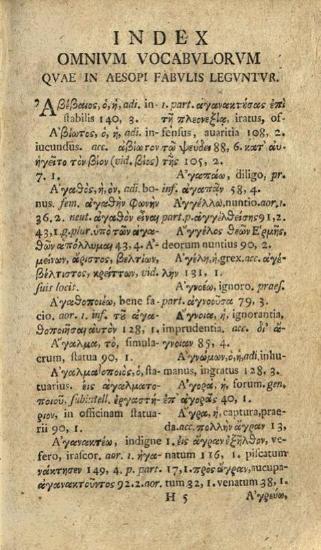 INDEX
OMNIVM VOCABVLORVM
QVAE IN AESOPI FABVLIS LEGVNTVR.
Ἀβέβαιος, ὁ, ἡ, adi. in-
stabilis 140, 3.
Ἀβίωτος, ὁ, ἡ, adi. in-
iucundus. acc. ἀβίωτον
ἡγεῖτο τὸν βίον (vid. βίος)
7. 1.
Ἀγαθὸς, ἡ, ὸν, adi. bo-
nus. fem. ἀγαθὴν φωνὴν
36. 2. neut. ἀγαθὸν εἶναι
43, 1. g. plur. ὑπὸ τῶν ἀγα-
θῶν ἀπόλλυμαι 43, 4. Ἀ-
μείνων, ἄριστος, βελτίων,
βέλτιστος, κρείττων, vid.
suis locit.
Ἀγαθοποιέω, bene fa-
cio. aor. 1. inf. τῷ ἀγα-
θοποιῆσαι αὐτὸν 128, 1.
Ἄγαλμα, τὸ, simula-
crum, statua 90, 1.
Ἀγαλματοποιὸς, ὁ, sta-
tuarius. εἰς ἀγαλματο-
ποιοῦ, subintell. ἐργαστή-
ριον, in officinam statua-
rii 90, 1.
Ἀγανακτέω, indigne
fero, irascor. aor. 1. ἠγα-
νάκτησεν 149, 4. p. part.
ἀγανακτοῦντος 92. 2. aor.
1. part. ἀγανακτήσας ἐπὶ
τῇ πλεονεξίᾳ, iratus, of-
fensus, avaritia 108, 2.
τῷ ψεύδει 88, 6. κατ' αὐ-
τῆς 105, 2.
Ἀγαπάω, diligo, pr.
inf. ἀγαπᾶν 58, 4.
Ἀγγέλλω, nuntio. aor. 1.
part. p. ἀγγελθείσης 91, 2.
Ἄγγελος θεῶν Ἑρμῆς,
deorum nuntius 90, 2.
Ἀγέλη, ἡ, grex. acc. ἀγέ-
λην 131, 1.
Ἀγνοέω, ignoro. praes.
part. ἀγνοοῦσα 79, 3.
Ἄγνοια, ἡ, ignorantia,
imprudentia. acc. δι' ἄ-
γνοιαν 85, 4.
Ἀγνώμων, ὁ, ἡ, adi, inhu-
manus, ingratus 128, 3.
Ἀγορὰ, ἡ, forum. gen.
ἐπ' ἀγορᾶς 40, 1.
Ἄγρα, ἡ, captura, prae-
da. acc. πολλὴν ἄγραν 13,
1. εἰς ἄγραν ἐξῆλθον, ve-
natum 116, 1. piscatum
17, 1. πρὸς ἄγραν, aucupa-
tum 32, 1. venatum 38, 1.
H 5
Ἀγρεύω,